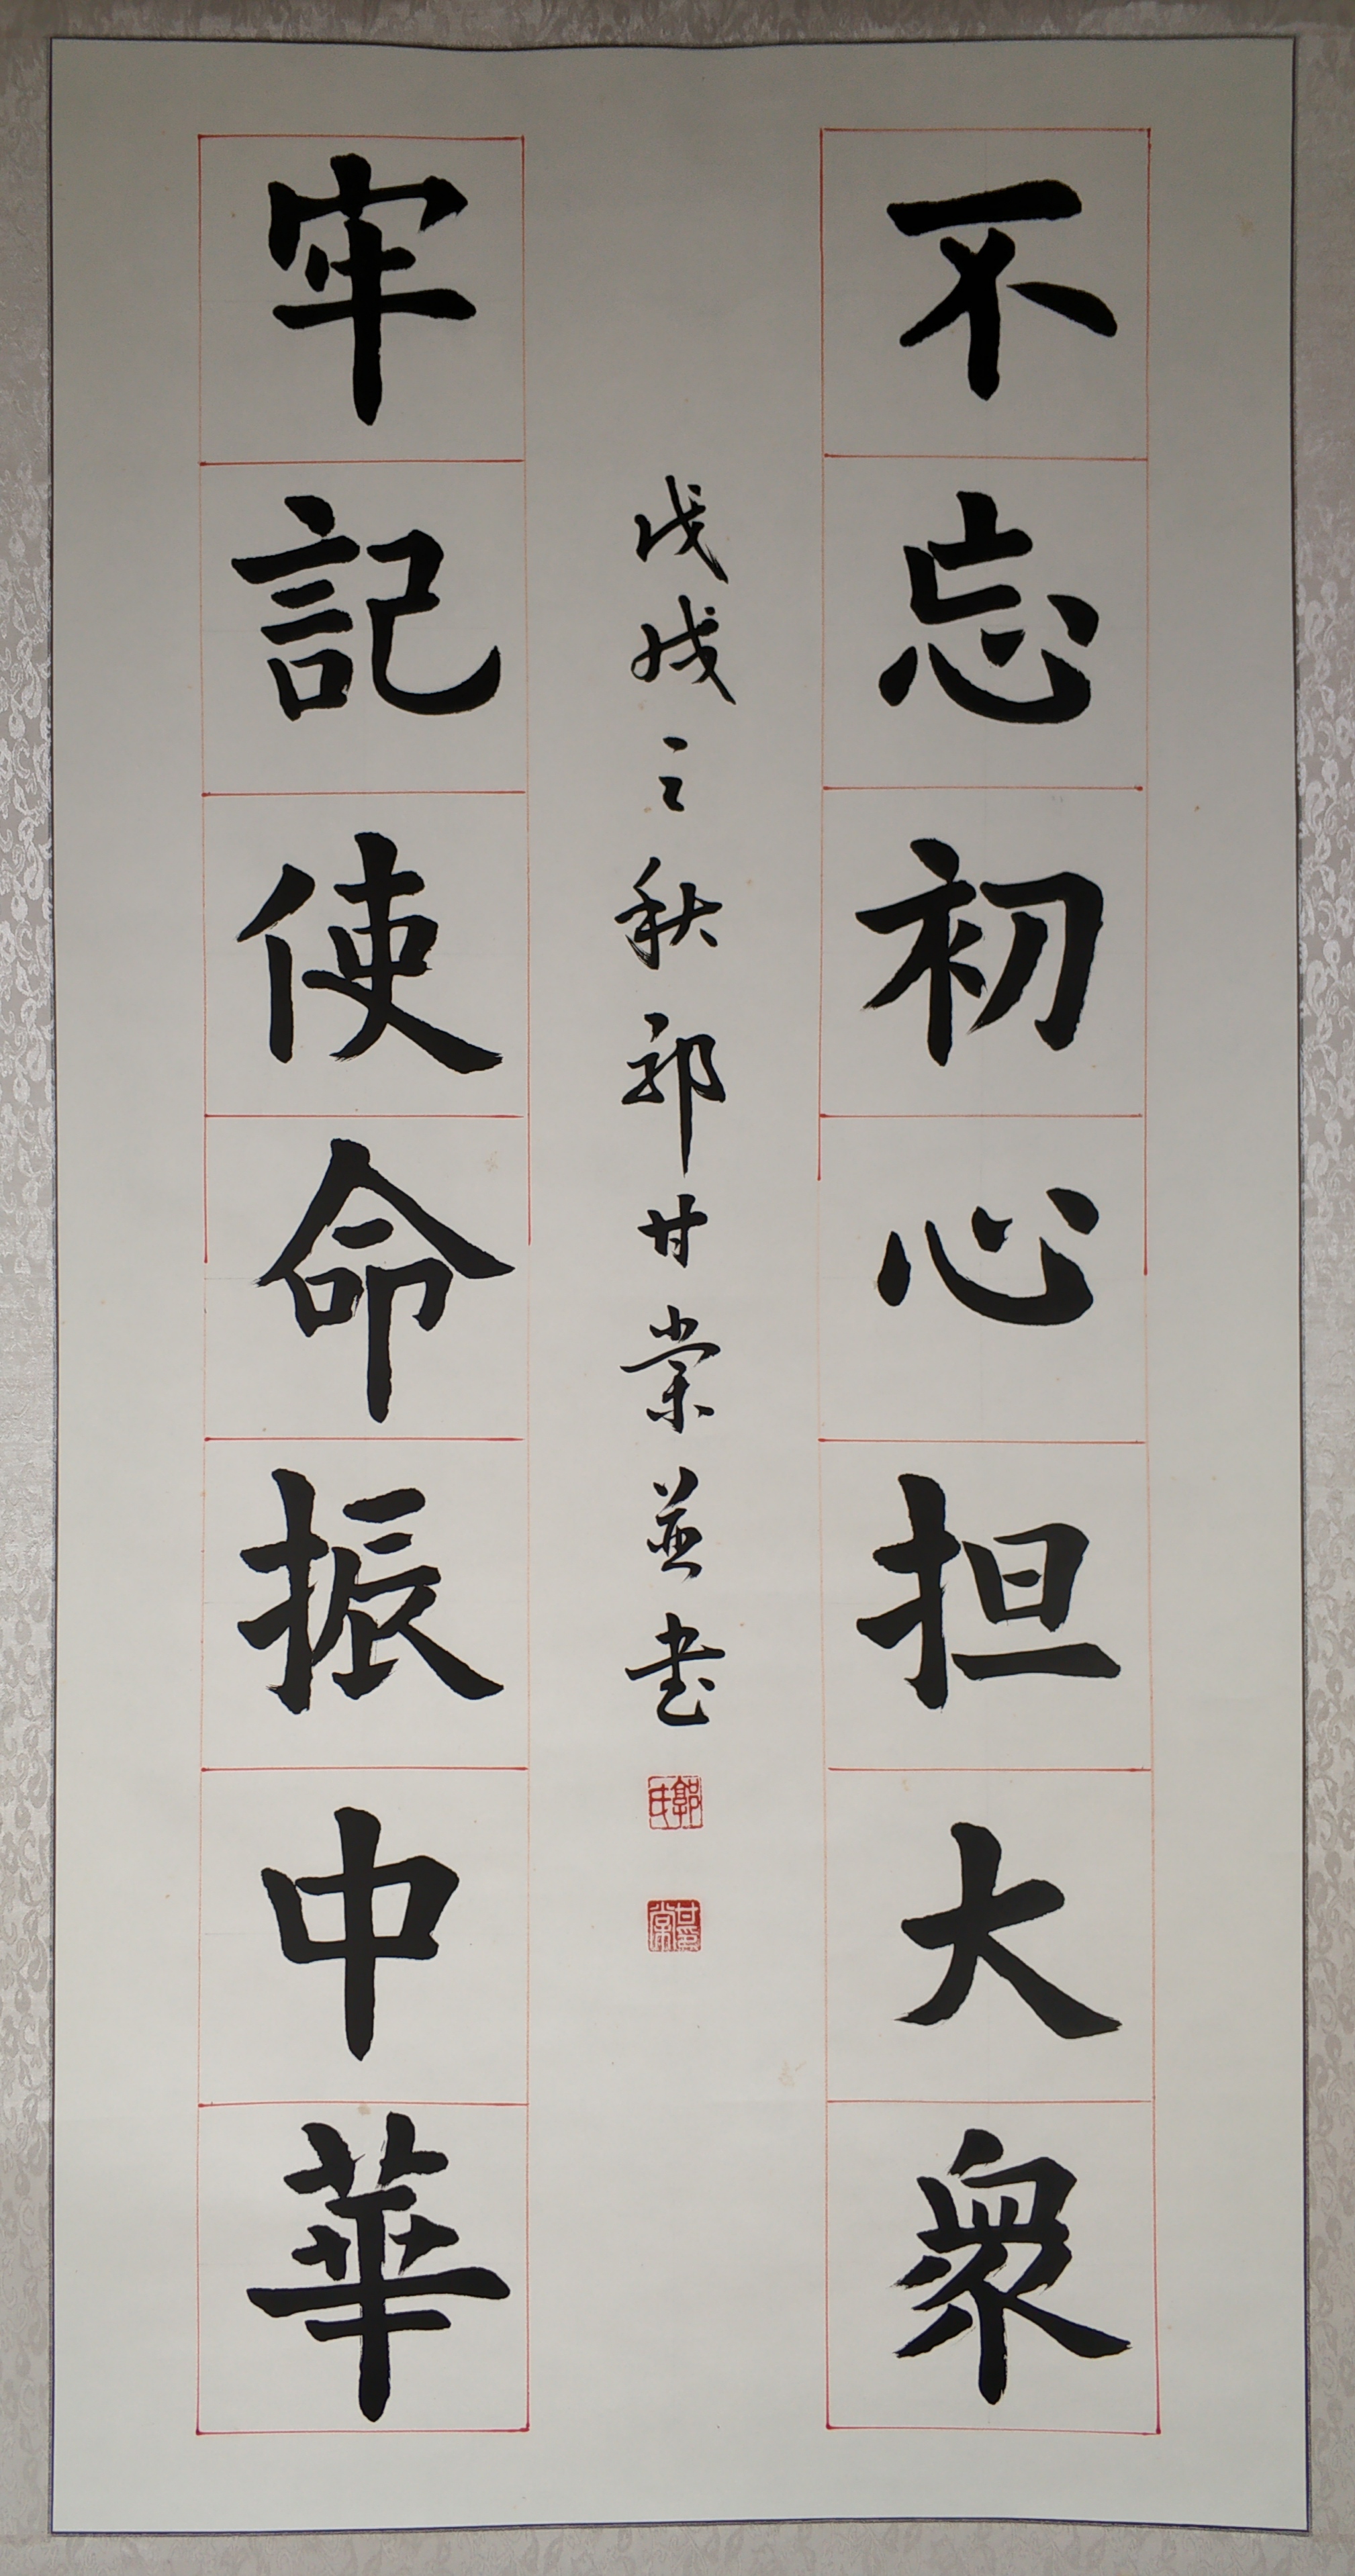 不忘初心担大衆
戊戌之秋郭甘棠並书
郭氏
甘棠
牢記使命振中華